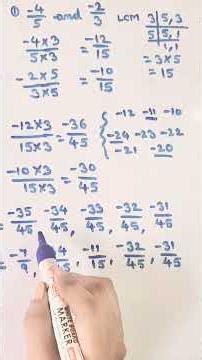 ① -4/5 and -2/3 LCM 3|5,3
5|5,1
1,1
-4×3/5×3 = -12/15
= 3×5
= 15
-2×5/3×5 = -10/15
-12 -11 -10
-12×3/15×3 = -36/45
-24 -23 -22
-21 -20
-10×3/15×3 = -30/45
= -35/45, -34/45, -33/45, -32/45, -31/45
= -7/9, -11/15, -32/45, -31/45
MARKER